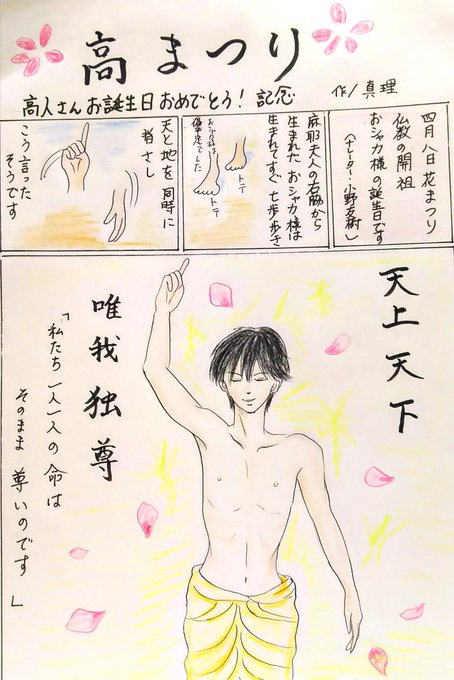 高まつり
高人さんお誕生日おめでとう! 記念
作/真理
四月八日 花まつり
仏教の開祖
おシャカ様の誕生日です
(ナレーター 小野友樹)
麻耶夫人の右脇から
生まれた おシャカ様は
生まれてすぐ 七歩歩き
トテ
トテ
天と地を同時に
指さし
こう言った
そうです
天上天下
唯我独尊
「私たち一人一人の命は
そのまま 尊いのです」